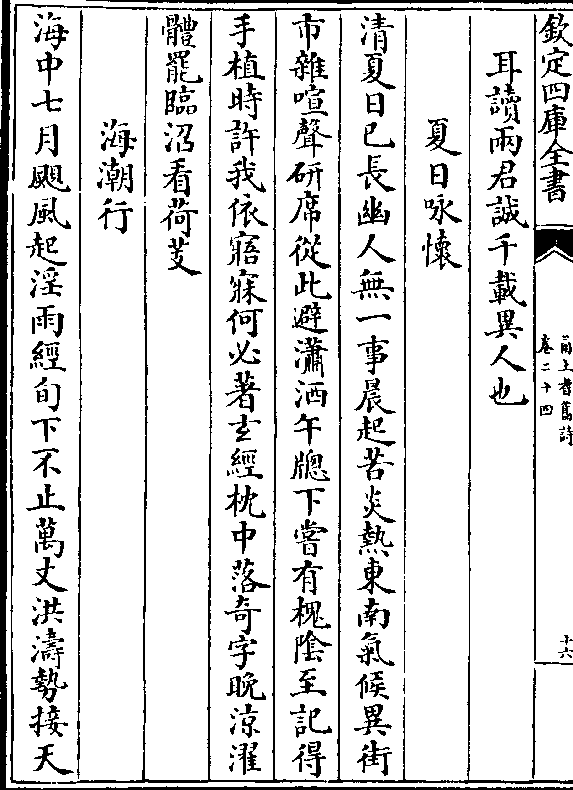 欽定四庫全書
甬上耆舊詩
卷二十四
十六
耳讀兩君誠千載異人也
夏日咏懷
清夏日已長幽人無一事晨起苦炎熱東南氣候異街
市雜喧聲研席從此避瀟洒午牎下嘗有槐陰至記得
手植時許我依寤寐何必著玄經枕中落奇字晚涼濯
體罷臨沼看荷芰
海潮行
海中七月颶風起淫雨經旬下不止萬丈洪濤勢接天